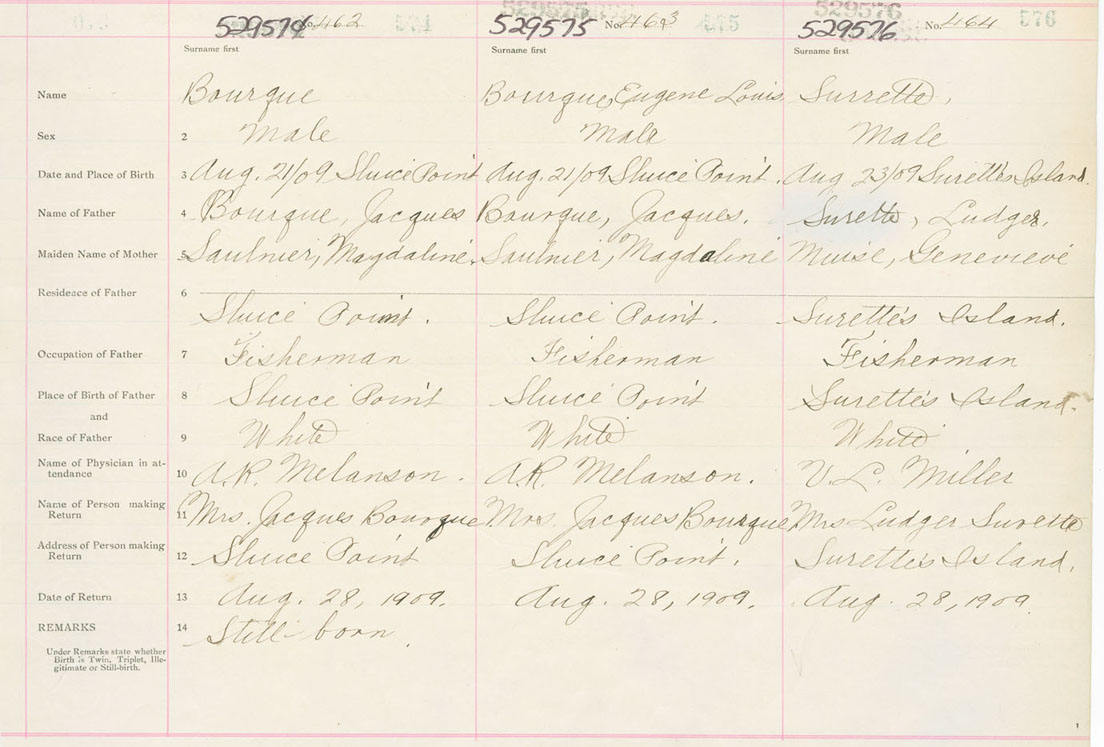 529574 No. 462 574 529575 No. 463 575 529576 No. 464 576
Surname first Surname first Surname first
Name Bourque Bourque, Eugene Louis Surrette,
Sex 2 Male Male Male
Date and Place of Birth 3 Aug. 21/09 Sluice Point Aug. 21/09 Sluice Point. Aug 23/09 Surette's Island.
Name of Father 4 Bourque, Jacques Bourque, Jacques. Surette, Ludger.
Maiden Name of Mother 5 Saulnier, Magdaline. Saulnier, Magdaline Muise, Genevieve
Residence of Father 6
Sluice Point. Sluice Point. Surette's Island.
Occupation of Father 7 Fisherman Fisherman Fisherman
Place of Birth of Father 8 Sluice Point Sluice Point Surette's Island.
and
Race of Father 9 White White White
Name of Physician in at-
tendance 10 A.R. Melanson. A.R. Melanson. V. L. Miller
Name of Person making
Return 11 Mrs. Jacques Bourque Mrs. Jacques Bourque Mrs Ludger Surette
Address of Person making
Return 12 Sluice Point Sluice Point. Surette's Island.
Date of Return 13 Aug. 28, 1909. Aug. 28, 1909. Aug. 28, 1909.
REMARKS 14 Still-born.
Under Remarks state whether
Birth is Twin, Triplet, Ille-
gitimate or Still-birth.